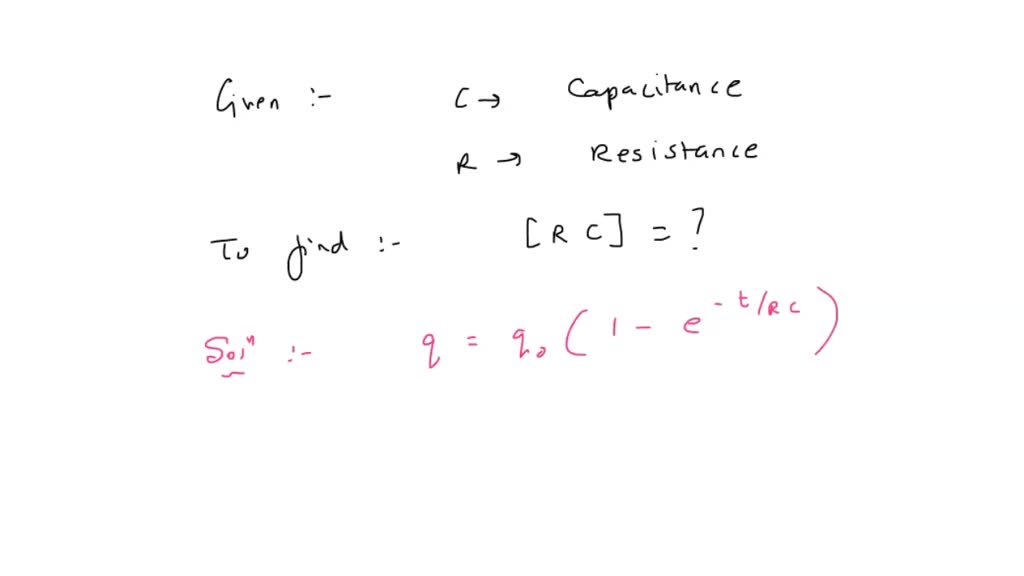 Given :- C → Capacitance
R → Resistance
To find :- [R C] = ?
Solⁿ :- q = q₀ (1 - e^(-t/RC))